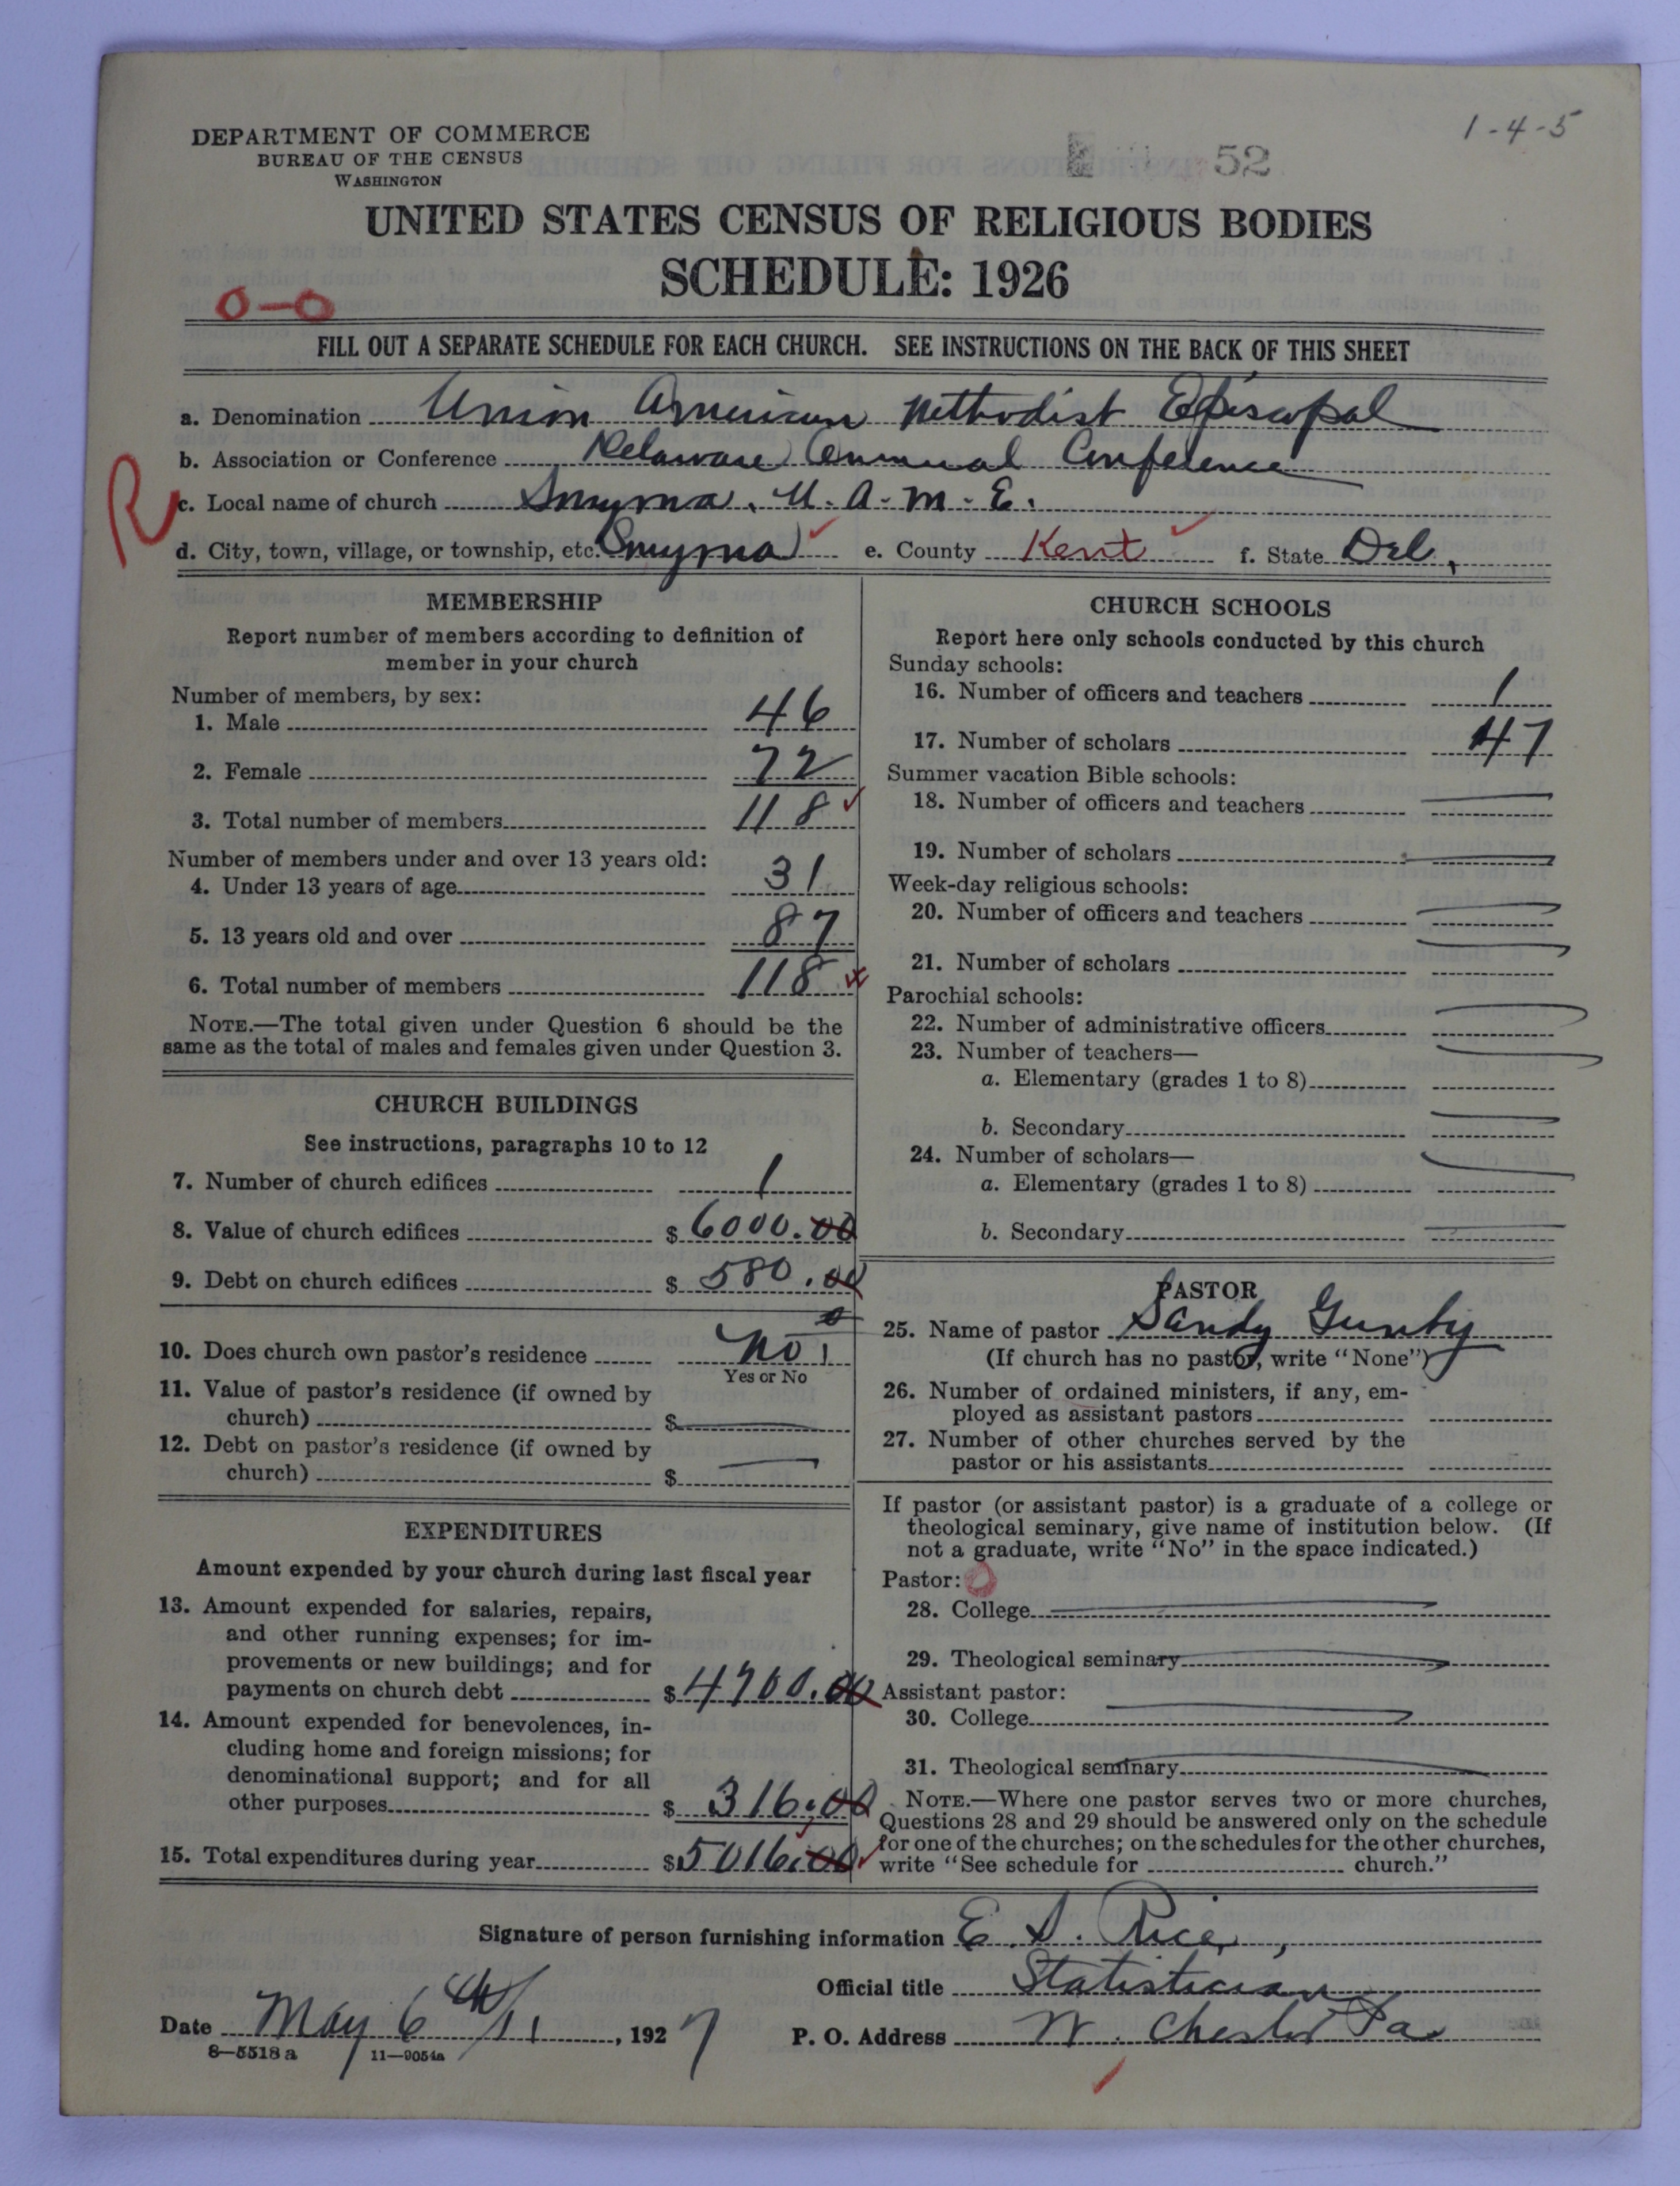 1-4-5
DEPARTMENT OF COMMERCE
BUREAU OF THE CENSUS
WASHINGTON
52
UNITED STATES CENSUS OF RELIGIOUS BODIES
SCHEDULE: 1926
0-0
FILL OUT A SEPARATE SCHEDULE FOR EACH CHURCH. SEE INSTRUCTIONS ON THE BACK OF THIS SHEET
a. Denomination Union American Methodist Episcopal
b. Association or Conference Delaware Annual Conference
R
c. Local name of church Smyrna. U. A. M. E.
d. City, town, village, or township, etc. Smyrna e. County Kent f. State Del.
MEMBERSHIP
Report number of members according to definition of
member in your church
Number of members, by sex:
1. Male 46
2. Female 72
3. Total number of members 118
Number of members under and over 13 years old:
4. Under 13 years of age 31
5. 13 years old and over 87
6. Total number of members 118
NOTE.—The total given under Question 6 should be the
same as the total of males and females given under Question 3.
CHURCH BUILDINGS
See instructions, paragraphs 10 to 12
7. Number of church edifices 1
8. Value of church edifices $6000.00
9. Debt on church edifices $580.00
10. Does church own pastor's residence No
Yes or No
11. Value of pastor's residence (if owned by
church) $
12. Debt on pastor's residence (if owned by
church) $
EXPENDITURES
Amount expended by your church during last fiscal year
13. Amount expended for salaries, repairs,
and other running expenses; for im-
provements or new buildings; and for
payments on church debt $4700.00
14. Amount expended for benevolences, in-
cluding home and foreign missions; for
denominational support; and for all
other purposes $316.00
15. Total expenditures during year $5016.00
CHURCH SCHOOLS
Report here only schools conducted by this church
Sunday schools:
16. Number of officers and teachers 1
17. Number of scholars 47
Summer vacation Bible schools:
18. Number of officers and teachers
19. Number of scholars
Week-day religious schools:
20. Number of officers and teachers
21. Number of scholars
Parochial schools:
22. Number of administrative officers
23. Number of teachers—
a. Elementary (grades 1 to 8)
b. Secondary
24. Number of scholars—
a. Elementary (grades 1 to 8)
b. Secondary
PASTOR
25. Name of pastor Sandy Gunby
(If church has no pastor, write "None")
26. Number of ordained ministers, if any, em-
ployed as assistant pastors
27. Number of other churches served by the
pastor or his assistants
If pastor (or assistant pastor) is a graduate of a college or
theological seminary, give name of institution below. (If
not a graduate, write "No" in the space indicated.)
Pastor: 0
28. College
29. Theological seminary
Assistant pastor:
30. College
31. Theological seminary
NOTE.—Where one pastor serves two or more churches,
Questions 28 and 29 should be answered only on the schedule
for one of the churches; on the schedules for the other churches,
write "See schedule for church."
Signature of person furnishing information E. S. Rice,
Official title Statistician
Date May 6th/11, 1927 P. O. Address W. Chester Pa
8—5518a 11—9054a